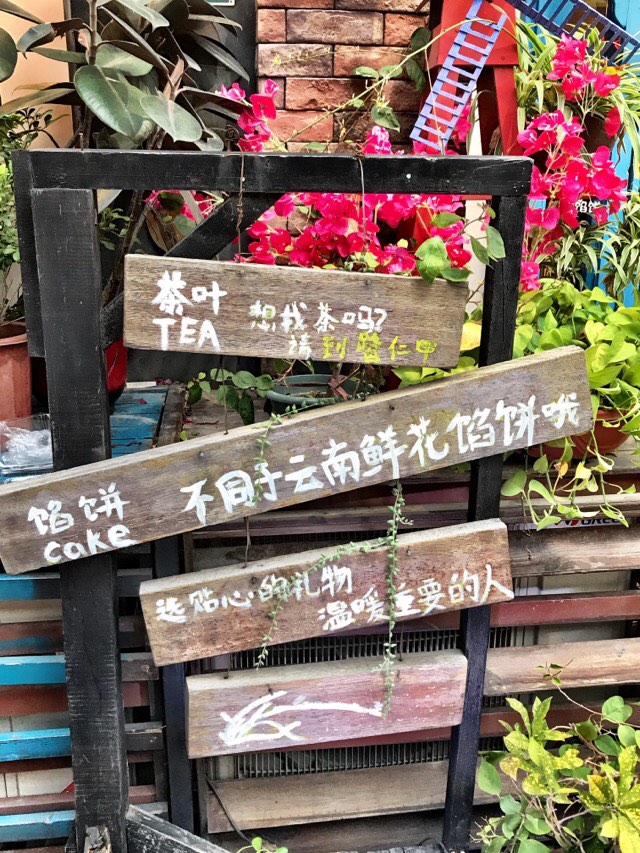 茶叶
TEA
想找茶吗?
请到赞仁甲
馅饼
cake
不同于云南鲜花馅饼哦
选贴心的礼物
温暖重要的人